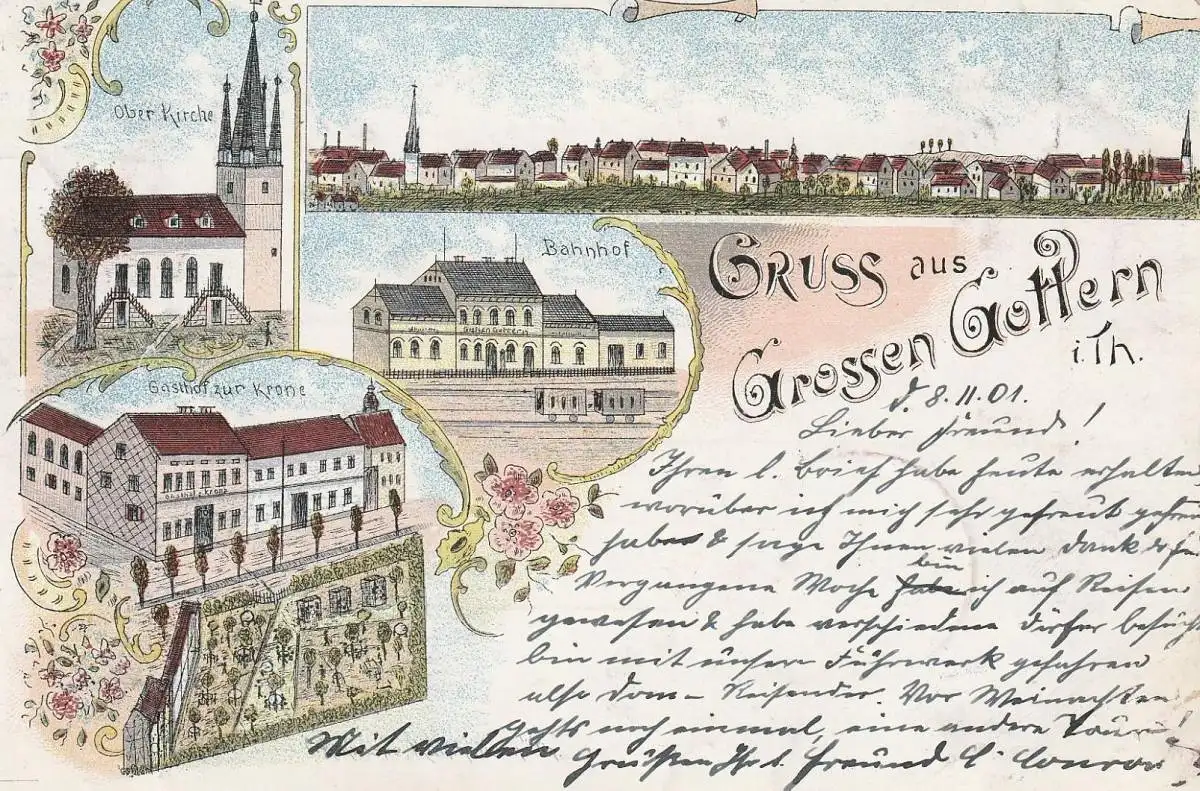 Ober Kirche
Bahnhof
Grossen Gottern
Gasthof zur Krone
Gasthof z. Krone
GRUSS aus
Grossen Gottern
i. Th.
d. 8. 11. 01.
Lieber Freund!
Ihren l. Brief habe heute erhalten
worüber ich mich sehr gefreut
habe & sage Ihnen vielen Dank
bin
Vergangene Woche habe ich auf Reisen
gewesen & habe verschiedene Dörfer besucht
bin mit unserm Fuhrwerk gefahren
also Reisender. Vor Weinachten
gehts noch einmal, eine andere
Mit vielen Grüßen Ihr l. Freund